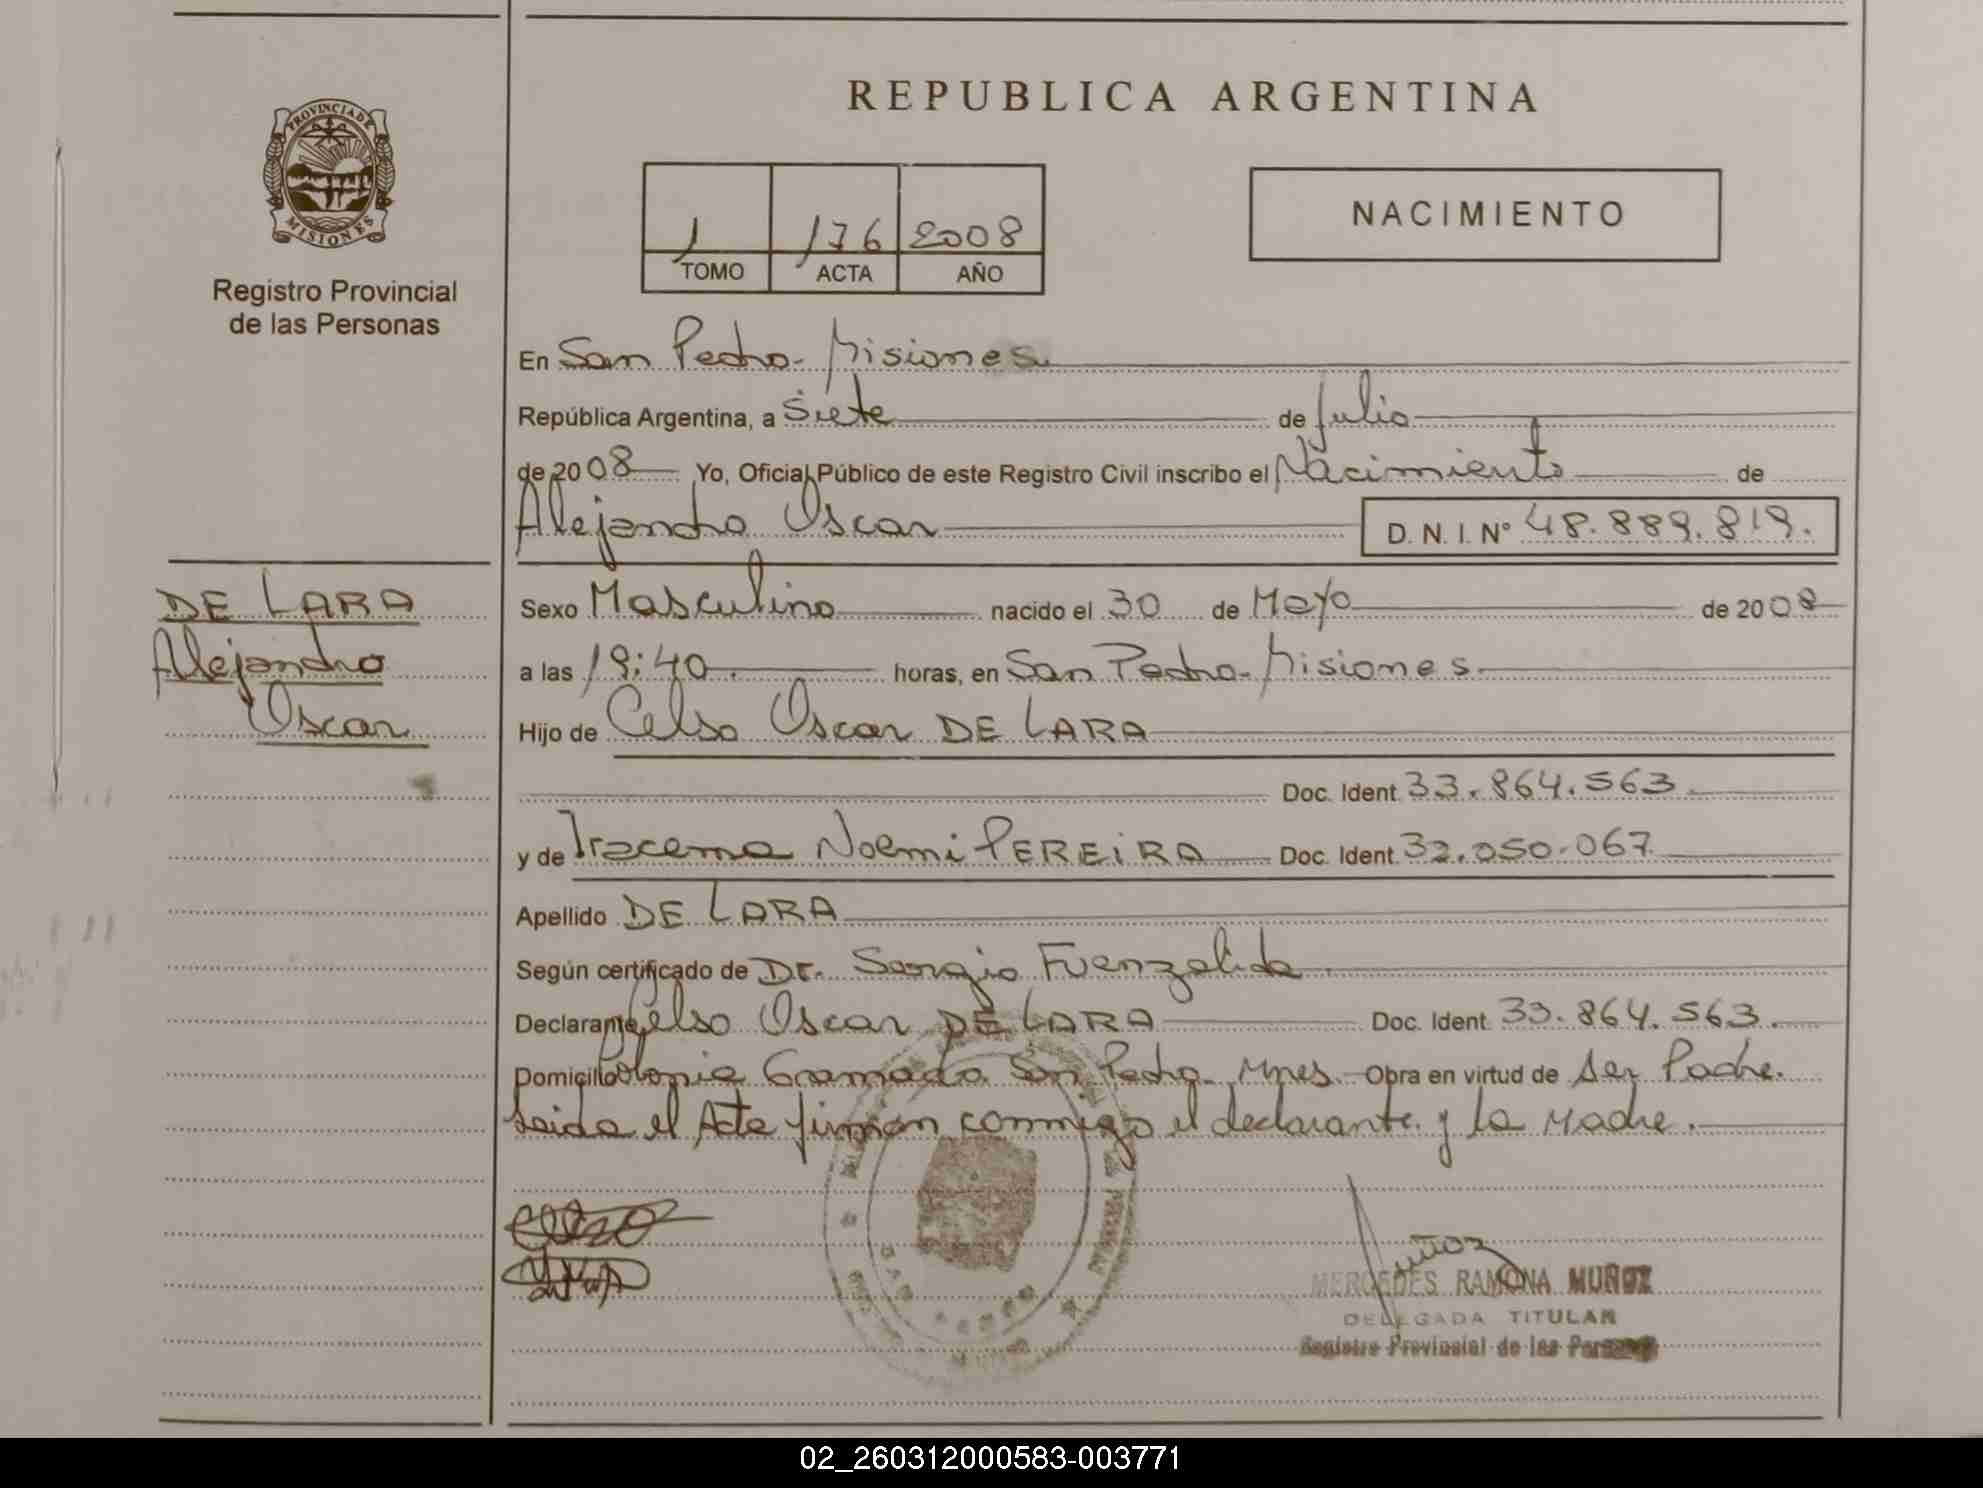 REPUBLICA ARGENTINA
PROVINCIA DE
MISIONES
Registro Provincial
de las Personas
1 176 2008
TOMO ACTA AÑO
NACIMIENTO
En San Pedro - Misiones
República Argentina, a Siete de Julio
de 2008 Yo, Oficial Público de este Registro Civil inscribo el Nacimiento de
Alejandro Oscar D. N. I. N° 48.889.819.
DE LARA
Alejandro
Oscar
Sexo Masculino nacido el 30 de Mayo de 2008
a las 19:40 horas, en San Pedro - Misiones
Hijo de Celso Oscar DE LARA
Doc. Ident. 33.864.563
y de Iracema Noemi PEREIRA Doc. Ident. 32.050.067
Apellido DE LARA
Según certificado de Dr. Sergio Fuenzalida
Declarante Celso Oscar DE LARA Doc. Ident. 33.864.563.
Domicilio Colonia Gramado San Pedro - Mnes. Obra en virtud de ser Padre.
Leida el Acta firman conmigo el declarante y la Madre.
Celso
Muñoz
MERCEDES RAMONA MUÑOZ
DELEGADA TITULAR
Registro Provincial de las
02_260312000583-003771